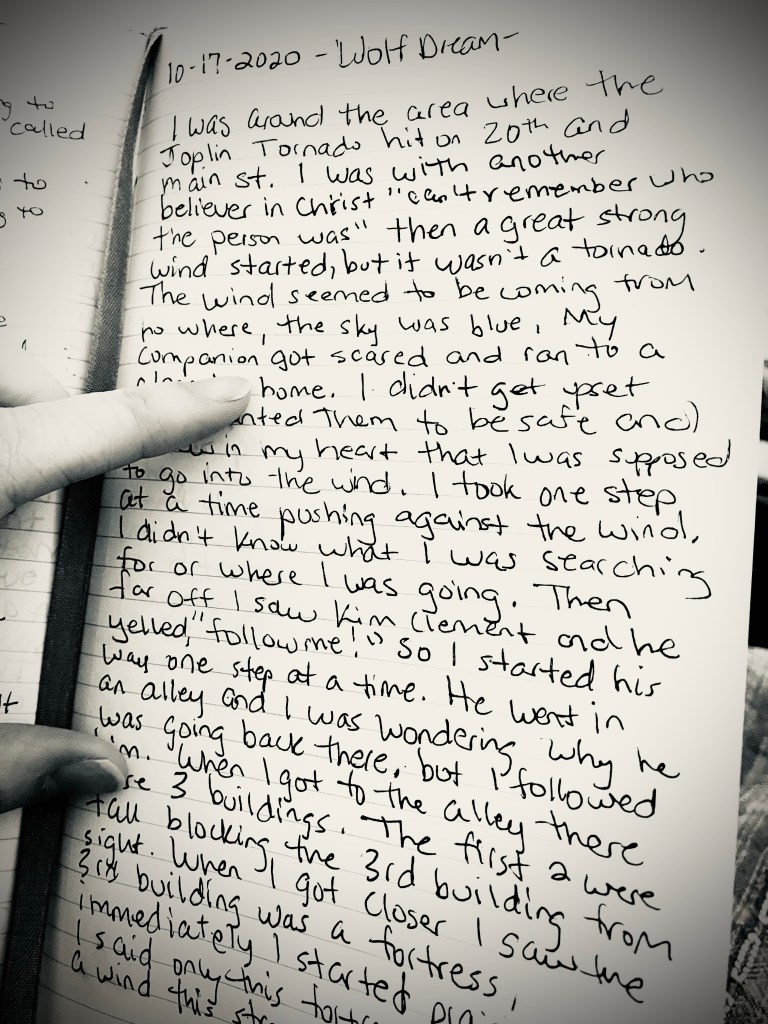 g to
called
to
to
10-17-2020 - Wolf Dream-
I was around the area where the
Joplin Tornado hit on 20th and
main st. I was with another
believer in Christ "can't remember who
the person was" then a great strong
wind started, but it wasn't a tornado.
The wind seemed to be coming from
no where, the sky was blue. My
companion got scared and ran to a
home. I didn't get upset
them to be safe and
in my heart that I was supposed
to go into the wind. I took one step
at a time pushing against the wind.
I didn't know what I was searching
for or where I was going. Then
far off I saw Kim Clement and he
yelled, "follow me!" So I started his
way one step at a time. He went in
an alley and I was wondering why he
was going back there, but I followed
him. When I got to the alley there
3 buildings. The first 2 were
tall blocking the 3rd building from
sight. When I got closer I saw the
3rd building was a fortress,
immediately I started
I said only this
a wind this